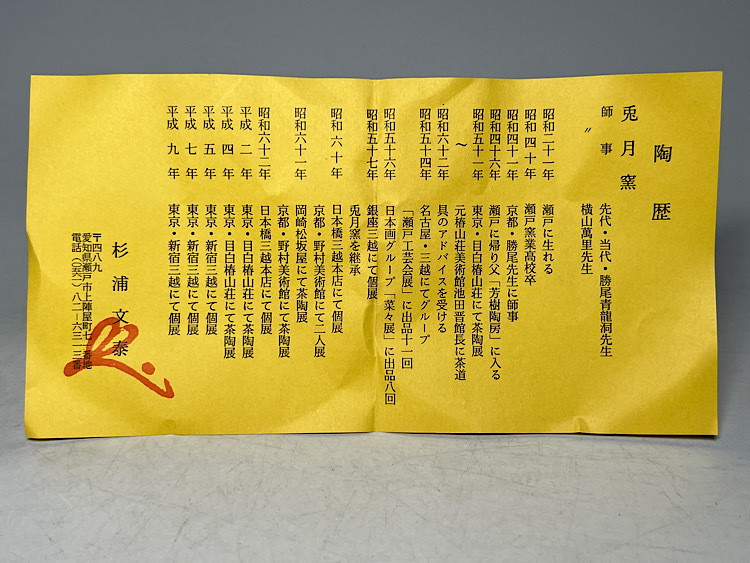 陶歴
兎月窯
師事 先代・当代・勝尾青龍洞先生
〃 横山萬里先生
昭和二十一年 瀬戸に生れる
昭和四十年 瀬戸窯業高校卒
昭和四十一年 京都・勝尾先生に師事
昭和四十六年 瀬戸に帰り父「芳樹陶房」に入る
昭和五十一年 東京・目白椿山荘にて茶陶展
〜 元椿山荘美術館池田晋館長に茶道
昭和六十二年 具のアドバイスを受ける
昭和五十四年 名古屋・三越にてグループ
「瀬戸工芸会展」に出品十一回
昭和五十六年 日本画グループ「菜々展」に出品八回
昭和五十七年 銀座三越にて個展
兎月窯を継承
昭和六十年 日本橋三越本店にて個展
京都・野村美術館にて二人展
昭和六十一年 岡崎松坂屋にて茶陶展
京都・野村美術館にて茶陶展
昭和六十二年 日本橋三越本店にて個展
平成二年 東京・目白椿山荘にて茶陶展
平成四年 東京・目白椿山荘にて茶陶展
平成五年 東京・新宿三越にて個展
平成七年 東京・新宿三越にて個展
平成九年 東京・新宿三越にて個展
杉浦文泰
〒四八九
愛知県瀬戸市上陣屋町七一番地
電話(〇五六一)八二−六三一三番